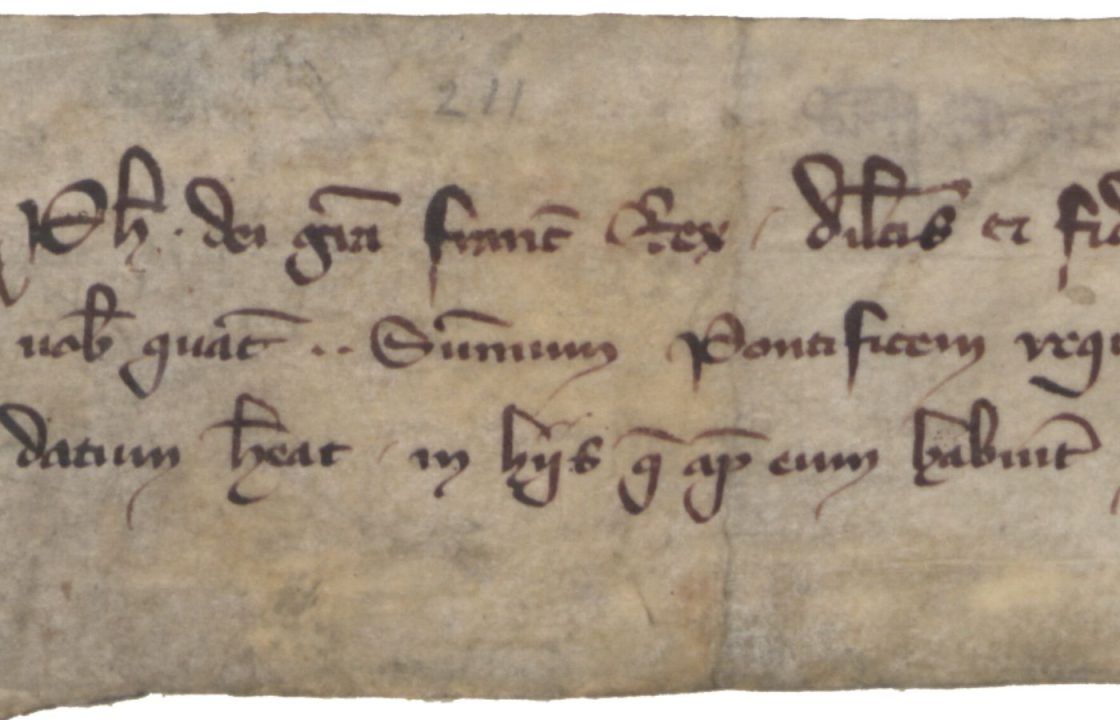 211
Ph. dei gra franc Rex dilcis et fid
nob quat .. Summum Pontificem requ
datum heat in hijs q ap eum habuit